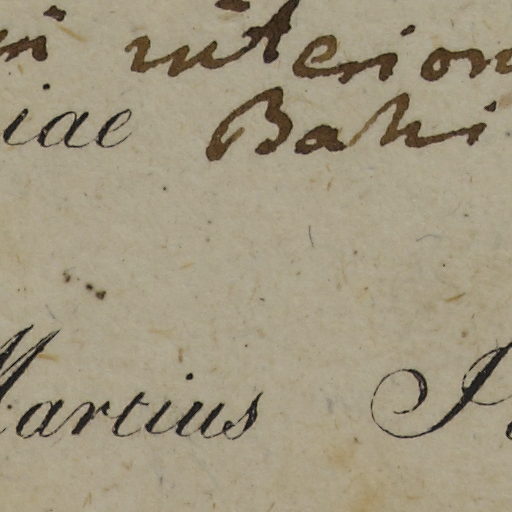 in interior
iae Bahi
Martius